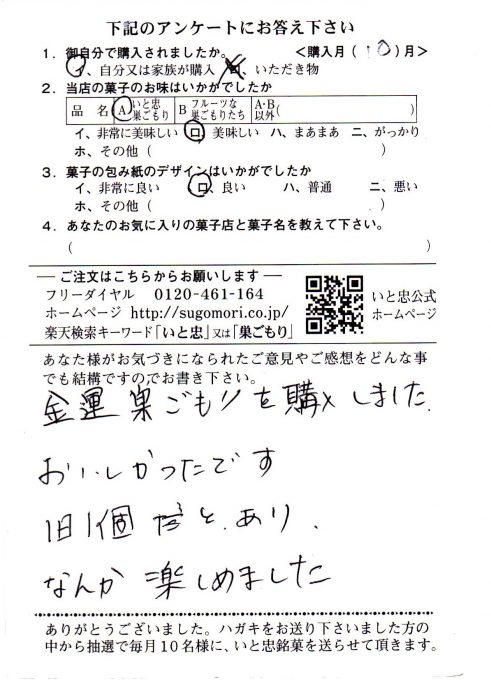 下記のアンケートにお答え下さい
1．御自分で購入されましたか。 ＜購入月（10）月＞
イ、自分又は家族が購入 ロ、いただき物
2．当店の菓子のお味はいかがでしたか
品 名 A いと忠巣ごもり B フルーツな巣ごもりたち A・B以外（ ）
イ、非常に美味しい ロ 美味しい ハ、まあまあ ニ、がっかり
ホ、その他（ ）
3．菓子の包み紙のデザインはいかがでしたか
イ、非常に良い ロ、良い ハ、普通 ニ、悪い
ホ、その他（ ）
4．あなたのお気に入りの菓子店と菓子名を教えて下さい。
（ ）
― ご注文はこちらからお願いします ―
フリーダイヤル 0120-461-164
ホームページ http://sugomori.co.jp/
楽天検索キーワード「いと忠」又は「巣ごもり」
いと忠公式
ホームページ
あなた様がお気づきになられたご意見やご感想をどんな事
でも結構ですのでお書き下さい。
金運 巣ごもりを購入しました.
おいしかったです
1日1個 だと、あり、
なんか 楽しめました
ありがとうございました。ハガキをお送り下さいました方の
中から抽選で毎月10名様に、いと忠銘菓を送らせて頂きます。